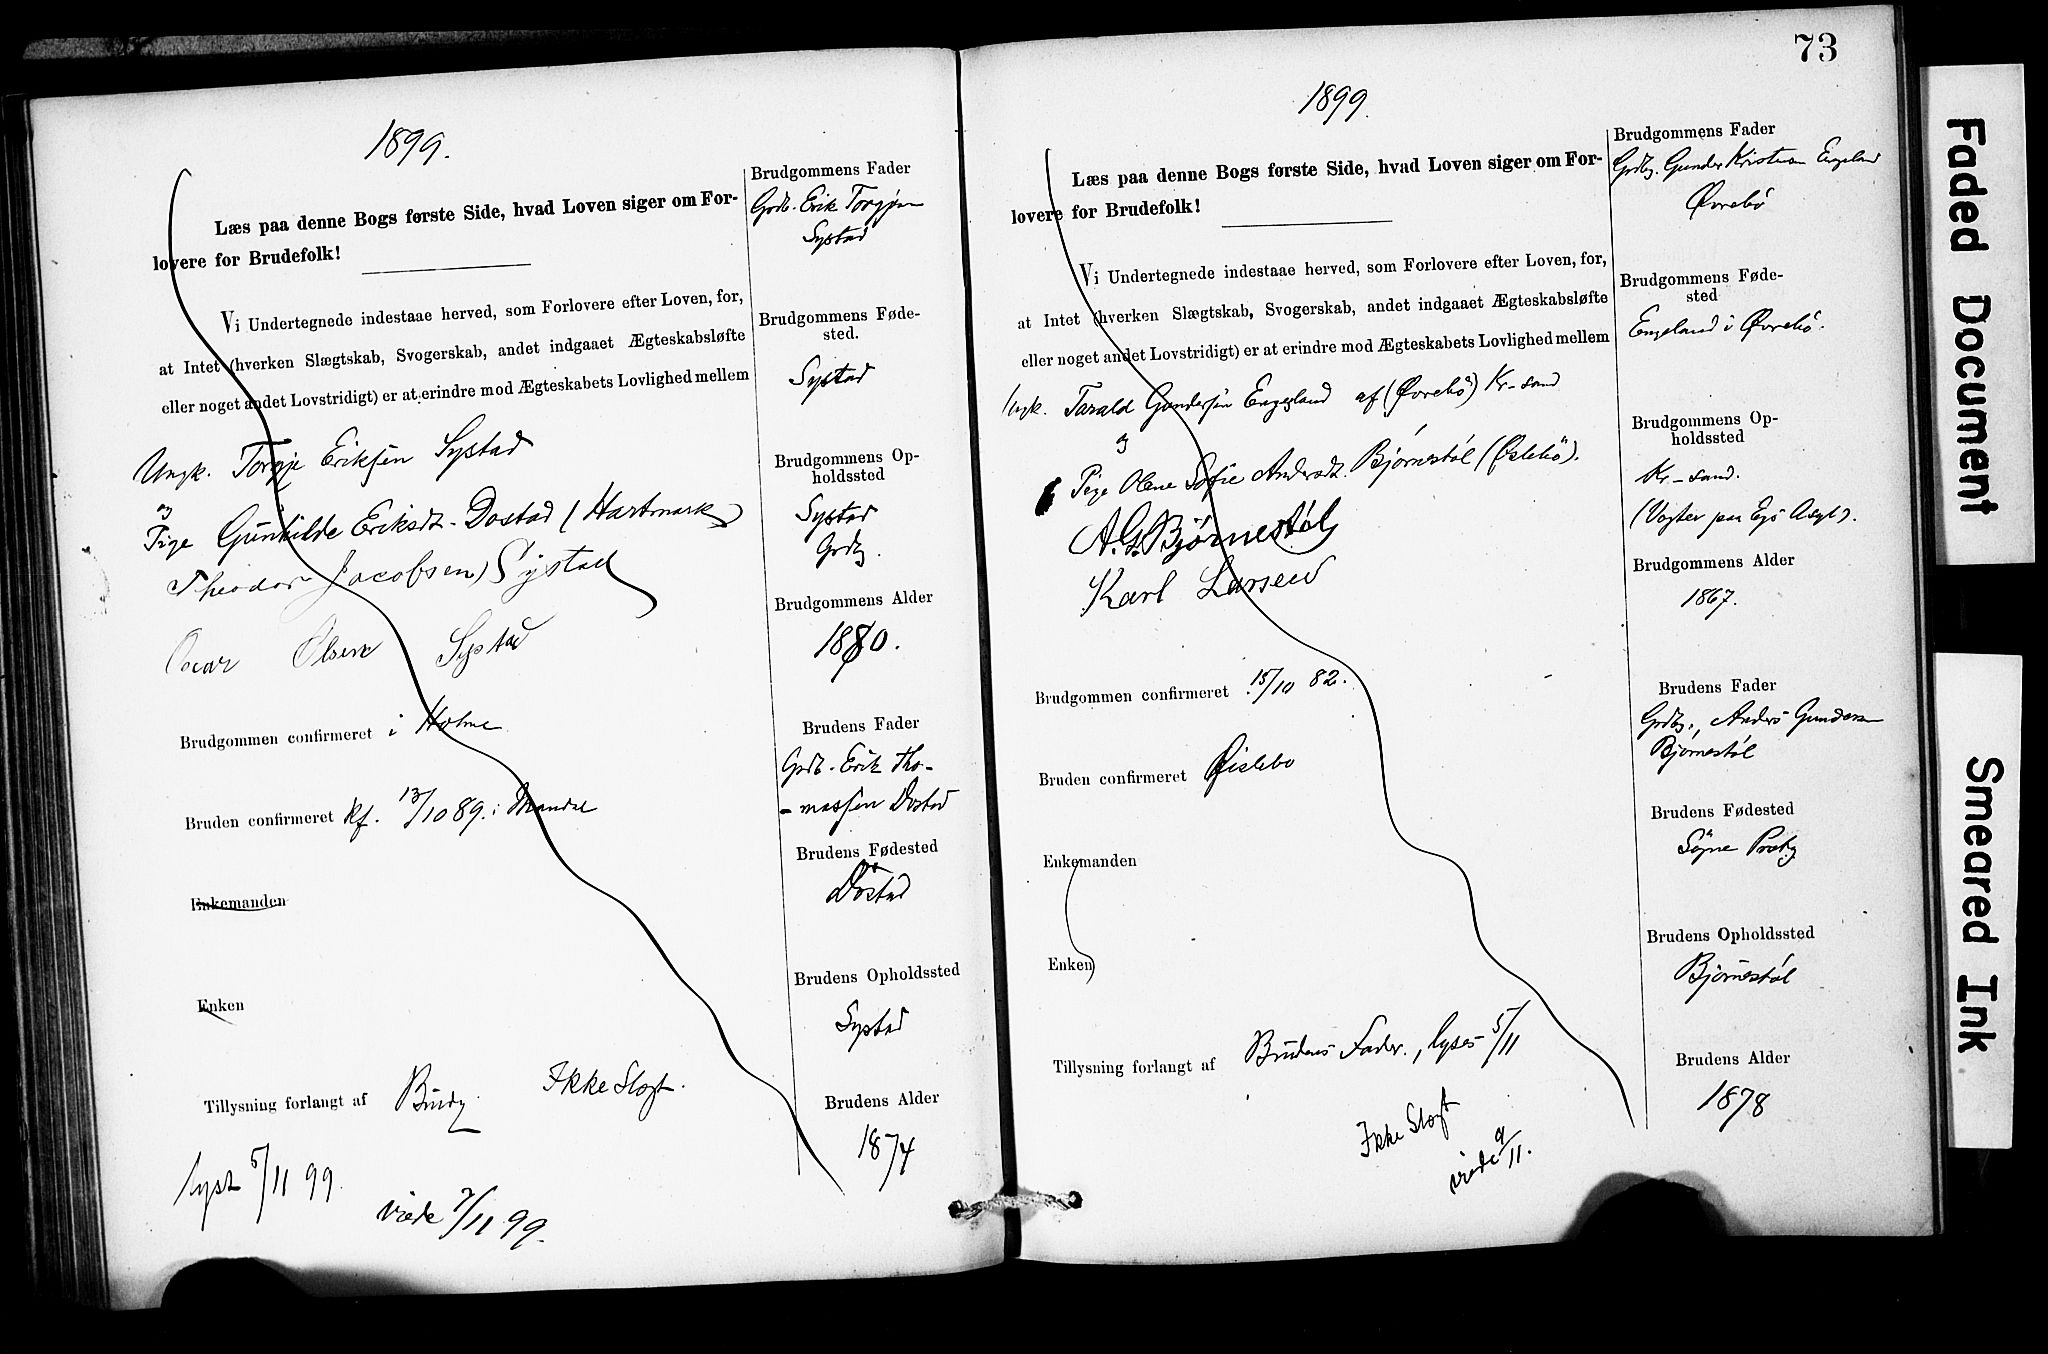 1899.
Læs paa denne Bogs første Side, hvad Loven siger om For-
lovere for Brudefolk!
Vi Undertegnede indestaae herved, som Forlovere efter Loven, for,
at Intet (hverken Slægtskab, Svogerskab, andet indgaaet Ægteskabsløfte
eller noget andet Lovstridigt) er at erindre mod Ægteskabets Lovlighed mellem
Ungk. Torgje Eriksen Systad
og
Pige Gunhilde Eriksdt. Dostad (Hartmark)
Theodor Jacobsen Systad
Oscar Olsen Systad
Brudgommen confirmeret i Holme
Bruden confirmeret Kf. 13/10 89. i Mandal
Enkemanden
Enken
Tillysning forlangt af Brudg. Ikke Slægt.
lyst 5/11 99.
viede 7/11 99.
Brudgommens Fader
Grdb. Erik Torgjen
Systad
Brudgommens Føde-
sted.
Systad
Brudgommens Op-
holdssted
Systad
Grdb.
Brudgommens Alder
1870.
Brudens Fader
Grdb. Erik Tho-
-massen Dostad
Brudens Fødested
Dostad
Brudens Opholdssted
Systad
Brudens Alder
1874
73
1899.
Læs paa denne Bogs første Side, hvad Loven siger om For-
lovere for Brudefolk!
Vi Undertegnede indestaae herved, som Forlovere efter Loven, for,
at Intet (hverken Slægtskab, Svogerskab, andet indgaaet Ægteskabsløfte
eller noget andet Lovstridigt) er at erindre mod Ægteskabets Lovlighed mellem
Ungk. Tarald Gundersen Engeland af (Øvrebö) Kr-sand
og
Pige Olene Sofie Andersdt. Bjørnestøl (Øslebö).
A. G. Bjørnestøl
Karl Larsen
Brudgommen confirmeret 15/10 82.
Bruden confirmeret Øislebo
Enkemanden
Enken
Tillysning forlangt af Brudens Fader., lyses 5/11
Ikke Slægt
viede 9/11.
Brudgommens Fader
Grdbg. Gunder Kristian Engeland
Øvrebö
Brudgommens Føde-
sted
Engeland i Øvrebö.
Brudgommens Op-
holdssted
Kr-sand.
(Vogter paa Egs Asyl).
Brudgommens Alder
1867.
Brudens Fader
Grdbg., Anders Gundersen
Bjørnestøl
Brudens Fødested
Søgne Prstg
Brudens Opholdssted
Bjørnestøl
Brudens Alder
1878
Faded Document
Smeared Ink